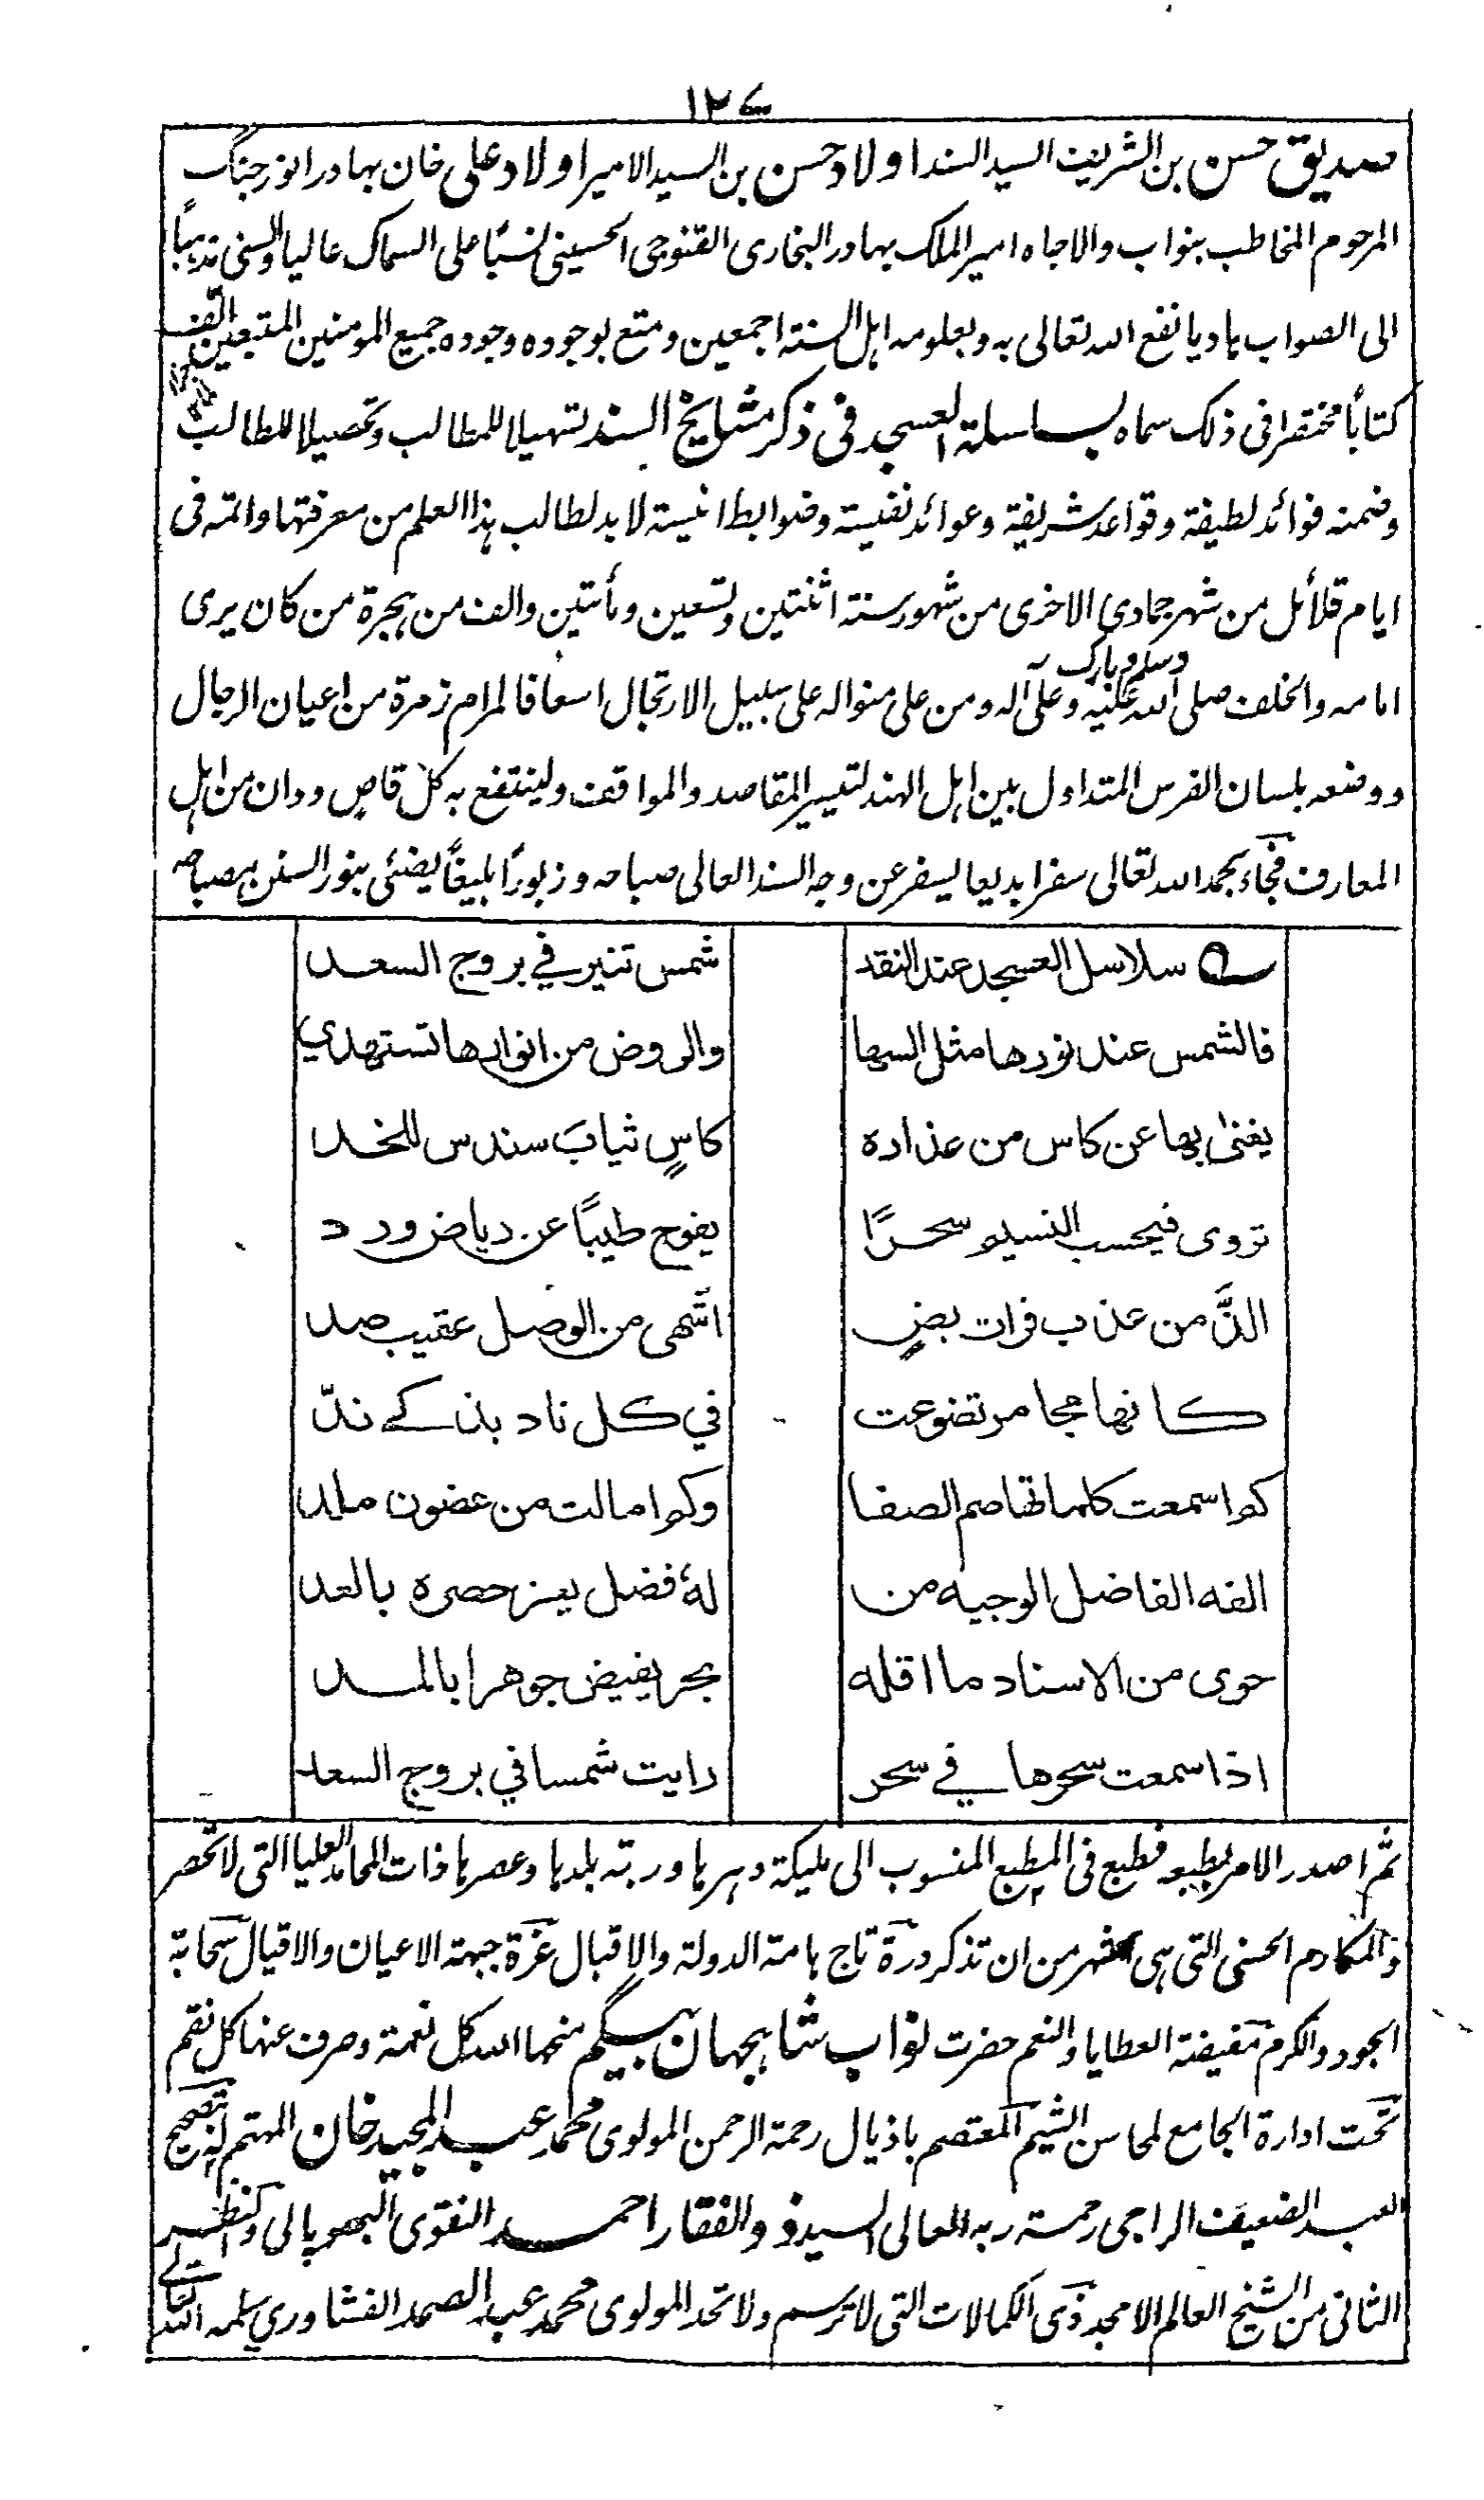 ١٢٧
صديق حسن بن الشريف السيد السند اولاد حسن بن السيد الامير اولاد علی خان بهادر انور جنگ
المرحوم المخاطب بنواب والاجاه امير الملك بهادر البخاری القنوجی الحسينی نسبًا علی السماك عاليا والسنی مذهبًا
الی الصواب هاديا نفع الله تعالی به وبعلومه اهل السنة اجمعين ومتع بوجوده وجوده جميع المومنين المتبعين الف
كتابًا مختصرا فی ذلك سماه بسلسلة العسجد فی ذكر مشايخ السند تسهيلا للمطالب وتحصيلا للطالب
وضمنه فوائد لطيفة وقواعد شريفة وعوائد نفيسة وضوابط انيسة لا بد لطالب هذا العلم من معرفتها واتمه فی
ايام قلائل من شهر جمادی الاخری من شهور سنة اثنتين وتسعين ومأتين والف من هجرة من كان يری
امامه والخلف صلی الله عليه وعلی آله وسلم وبارك ومن علی منواله علی سبيل الارتجال اسعافا لمرام زمرة من اعيان الرجال
ووضعه بلسان الفرس المتداول بين اهل الهند لتيسير المقاصد والمواقف ولينتفع به كل قاص ودان من اهل
المعارف فجاء بحمد الله تعالی سفرا بديعا يسفر عن وجه السند العالی صباحه وزبورًا بليغًا يضئی بنور السنن مصباحه
سلاسل العسجد عند النقد شمس تنير في بروج السعد
فالشمس عند نورها مثل السها والروض من انوارها تستهدي
يغنی بها عن كاس من عذاره كاسٍ ثيابَ سندس للخد
تروی فيحسب النسيم سحرًا يفوح طيبًا عن رياض ورد
الذَّ من عذب فرات بضٍ اشهی من الوصل عقيب صد
كانها مجامر تضوعت في كل ناد بذكے ندّ
كم اسمعت كلماتها صم الصفا وكم امالت من غضون ملد
الفه الفاضل الوجيه من لهٗ فضل يعز حصره بالعد
حوی من الاسناد ما اقله بحر يفيض جوهرا بالمد
اذا سمعت سحرها في سحر رايت شمسا في بروج السعد
ثم اصدر الامر بطبعه فطبع فی المطبع المنسوب الی مليكة دهرها وربة بلدها وعصرها ذات المحامد العليا التی لا تحصر
والمكارم الحسنی التی هی اشهر من ان تذكر درة تاج هامة الدولة والاقبال غرة جبهة الاعيان والاقيال سحابة
الجود والكرم مفيضة العطايا والنعم حضرت نواب شاهجهان بيگم منحها الله كل نعمة وصرف عنها كل نقم
تحت ادارة الجامع لمحاسن الشيم المعتصم باذيال رحمة الرحمن المولوی محمد عبد المجيد خان المهتم له بتصحيح
العبد الضعيف الراجی رحمة ربه المعالی السيد ذو الفقار احمد النقوی البهوپالی والنظر
الثانی من الشيخ العالم الامجد ذی الكمالات التی لا ترسم ولا تحد المولوی محمد عبد الصمد الفشاوري سلمه الله تعالے